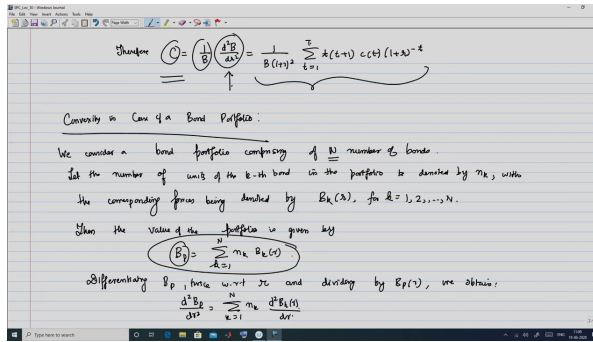 SPC_Lec_30 - Windows Journal
File Edit View Insert Actions Tools Help
Page Width
Therefore C = (1/B) (d²B/dr²) = 1/(B(1+r)²) Σ_{t=1}^{T} t(t+1) c(t) (1+r)^{-t}
Convexity in Case of a Bond Portfolio:
We consider a bond portfolio comprising of N number of bonds.
Let the number of units of the k-th bond in the portfolio be denoted by n_k, with
the corresponding prices being denoted by B_k(r), for k = 1, 2, ..., N.
Then the value of the portfolio is given by
B_p = Σ_{k=1}^{N} n_k B_k(r).
Differentiating B_p, twice w.r.t r and dividing by B_p(r), we obtain:
d²B_p/dr² = Σ_{k=1}^{N} n_k d²B_k(r)/dr
Type here to search
ENG